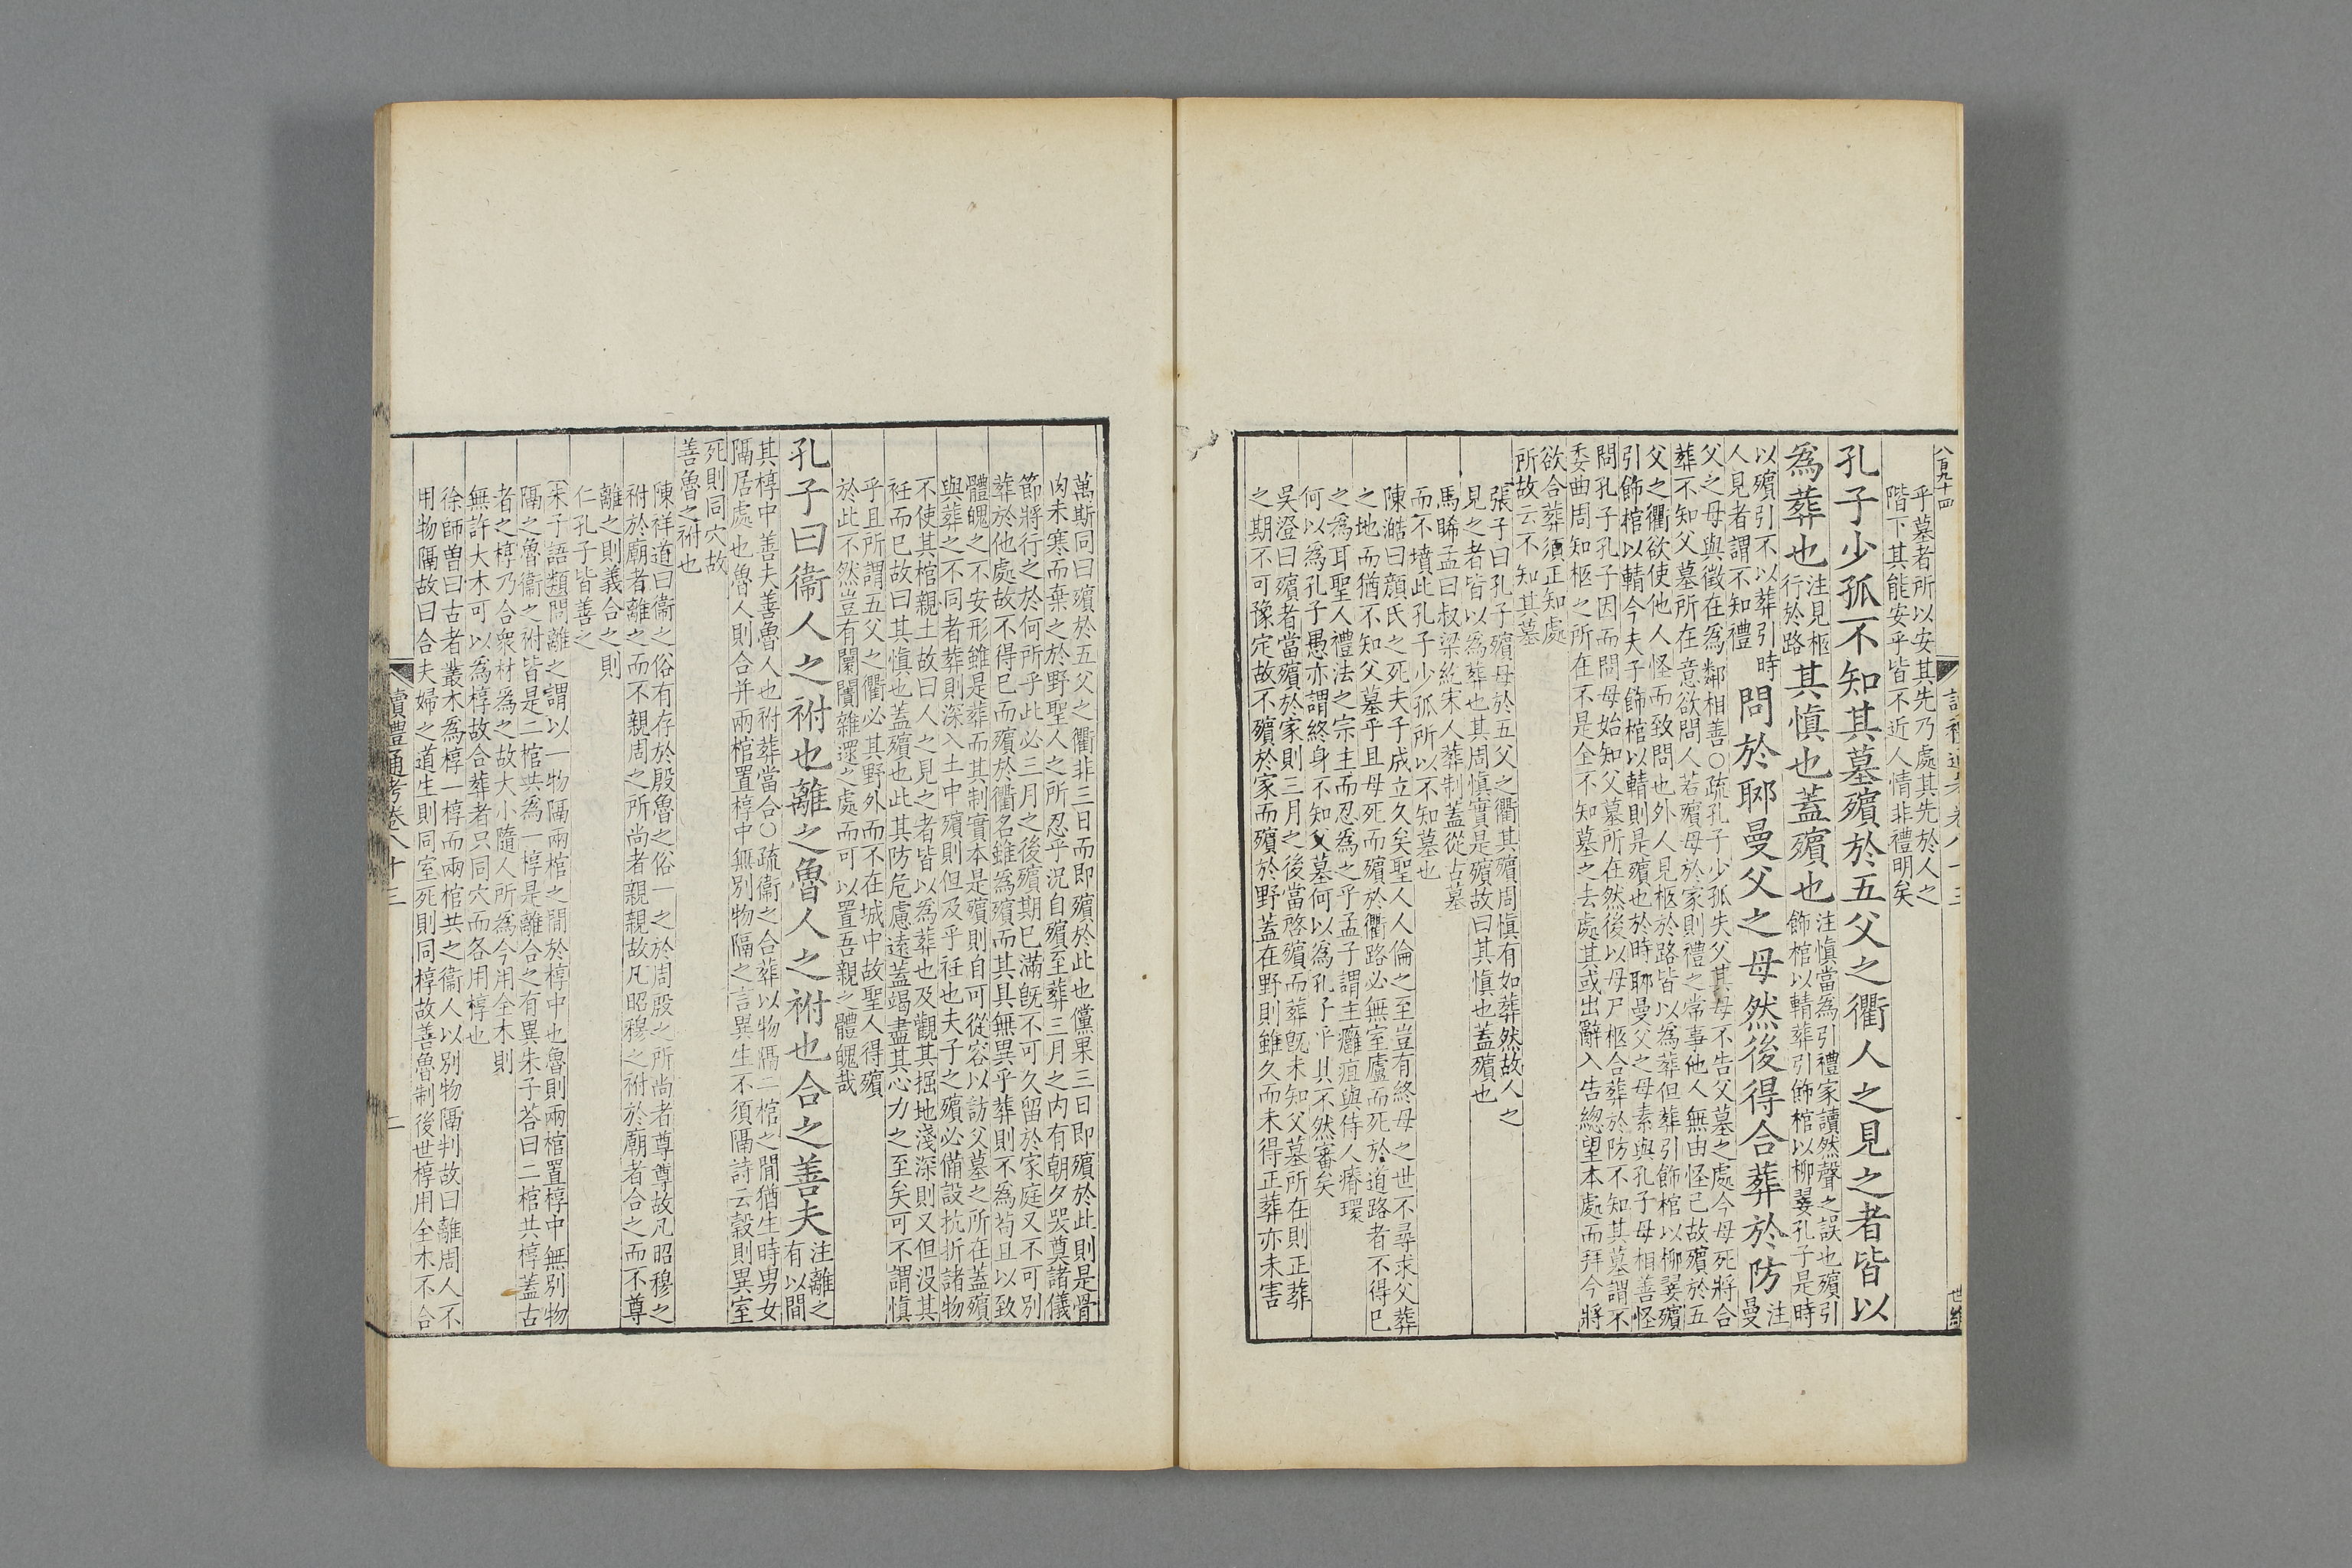 八百九十四
乎墓者所以安其先乃處其先於人之
階下其能安乎皆不近人情非禮明矣
孔子少孤不知其墓殯於五父之衢人之見之者皆以
爲葬也
注見柩
行於路
其慎也蓋殯也
注慎當爲引禮家讀然聲之誤也殯引
飾棺以輤葬引飾棺以柳翣孔子是時
以殯引不以葬引時
人見者謂不知禮
問於郰曼父之母然後得合葬於防
注
曼
父之母與徵在爲鄰相善○疏孔子少孤失父其母不告父墓之處今母死將合
葬不知父墓所在意欲問人若殯母於家則禮之常事他人無由怪己故殯於五
父之衢欲使他人怪而致問也外人見柩於路皆以爲葬但葬引飾棺以柳翣殯
引飾棺以輤今夫子飾棺以輤則是殯也於時郰曼父之母素與孔子母相善怪
問孔子孔子因而問母始知父墓所在然後以母尸柩合葬於防不知其墓謂不
委曲周知柩之所在不是全不知墓之去處其或出辭入告總望本處而拜今將
欲合葬須正知處
所故云不知其墓
張子曰孔子殯母於五父之衢其殯周慎有如葬然故人之
見之者皆以爲葬也其周慎實是殯故曰其慎也蓋殯也
馬晞孟曰叔梁紇宋人葬制蓋從古墓
而不墳此孔子少孤所以不知墓也
陳澔曰顏氏之死夫子成立久矣聖人人倫之至豈有終母之世不尋求父葬
之地而猶不知父墓乎且母死而殯於衢路必無室廬而死於道路者不得已
之爲耳聖人禮法之宗主而忍爲之乎孟子謂主癰疽與侍人瘠環
何以爲孔子愚亦謂終身不知父墓何以爲孔子乎其不然審矣
吳澄曰殯者當殯於家則三月之後當啓殯而葬旣未知父墓所在則正葬
之期不可豫定故不殯於家而殯於野蓋在野則雖久而未得正葬亦未害
萬斯同曰殯於五父之衢非三日而卽殯於此也儻果三日卽殯於此則是骨
肉未寒而棄之於野聖人之所忍乎況自殯至葬三月之內有朝夕哭奠諸儀
節將行之於何所乎此必三月之後殯期已滿旣不可久留於家庭又不可別
葬於他處故不得已而殯於衢名雖爲殯而其具無異乎葬則不爲苟且以致
體魄之不安形雖是葬而其制實本是殯則自可從容以訪父墓之所在蓋殯
與葬之不同者葬則深入土中殯則但及乎衽也夫子之殯必備設抗折諸物
不使其棺親土故曰人之見之者皆以爲葬也及觀其掘地淺深則又但沒其
衽而已故曰其慎也蓋殯也此其防危慮遠蓋竭盡其心力之至矣可不謂慎
乎且所謂五父之衢必其野外而不在城中故聖人得殯
於此不然豈有闤闠雜遝之處而可以置吾親之體魄哉
孔子曰衞人之祔也離之魯人之祔也合之善夫
注離之
有以間
其椁中善夫善魯人也祔葬當合○疏衞之合葬以物隔二棺之間猶生時男女
隔居處也魯人則合并兩棺置椁中無別物隔之言異生不須隔詩云穀則異室
死則同穴故
善魯之祔也
陳祥道曰衞之俗有存於殷魯之俗一之於周殷之所尚者尊尊故凡昭穆之
祔於廟者離之而不親周之所尚者親親故凡昭穆之祔於廟者合之而不尊
離之則義合之則
仁孔子皆善之
朱子語類問離之謂以一物隔兩棺之間於椁中也魯則兩棺置椁中無別物
隔之魯衞之祔皆是二棺共爲一椁是離合之有異朱子荅曰二棺共椁蓋古
者之椁乃合衆材爲之故大小隨人所爲今用全木則
無許大木可以爲椁故合葬者只同穴而各用椁也
徐師曾曰古者叢木爲椁一椁而兩棺共之衞人以別物隔判故曰離周人不
用物隔故曰合夫婦之道生則同室死則同椁故善魯制後世椁用全木不合
讀禮通考卷八十三
二